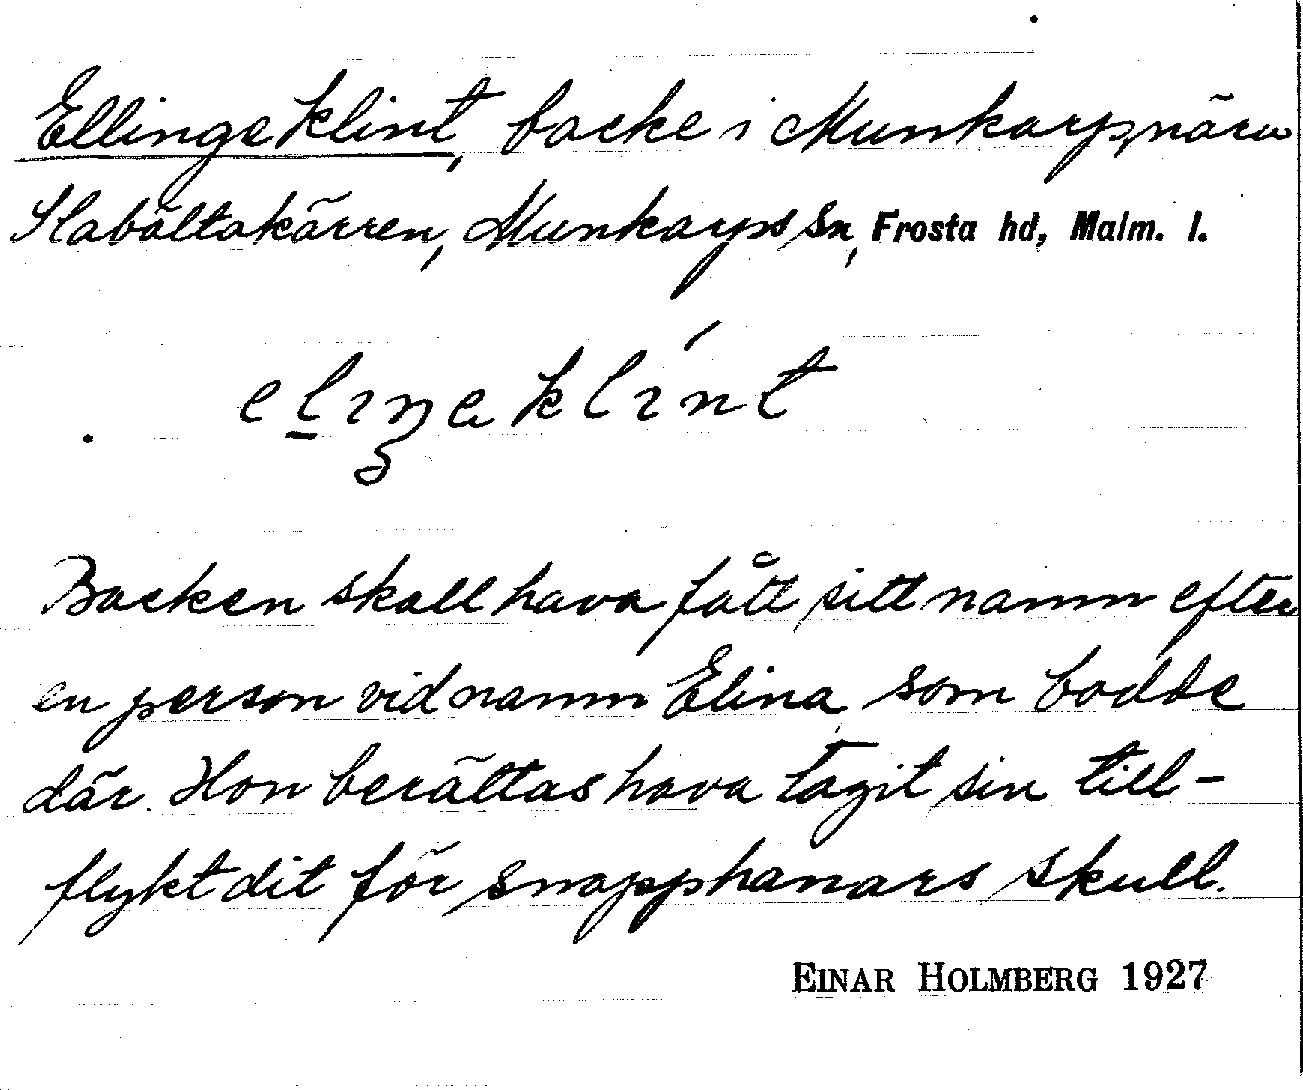 Ellinge klint, backe i Munkarp, nära
Slabältakärren, Munkarps sn, Frosta hd, Malm. l.
elıŋa klı́nt
Backen skall hava fått sitt namn efter
en person vid namn Elina, som bodde
där. Hon berättas hava tagit sin till-
flykt dit för snapphanars skull.
EINAR HOLMBERG 1927